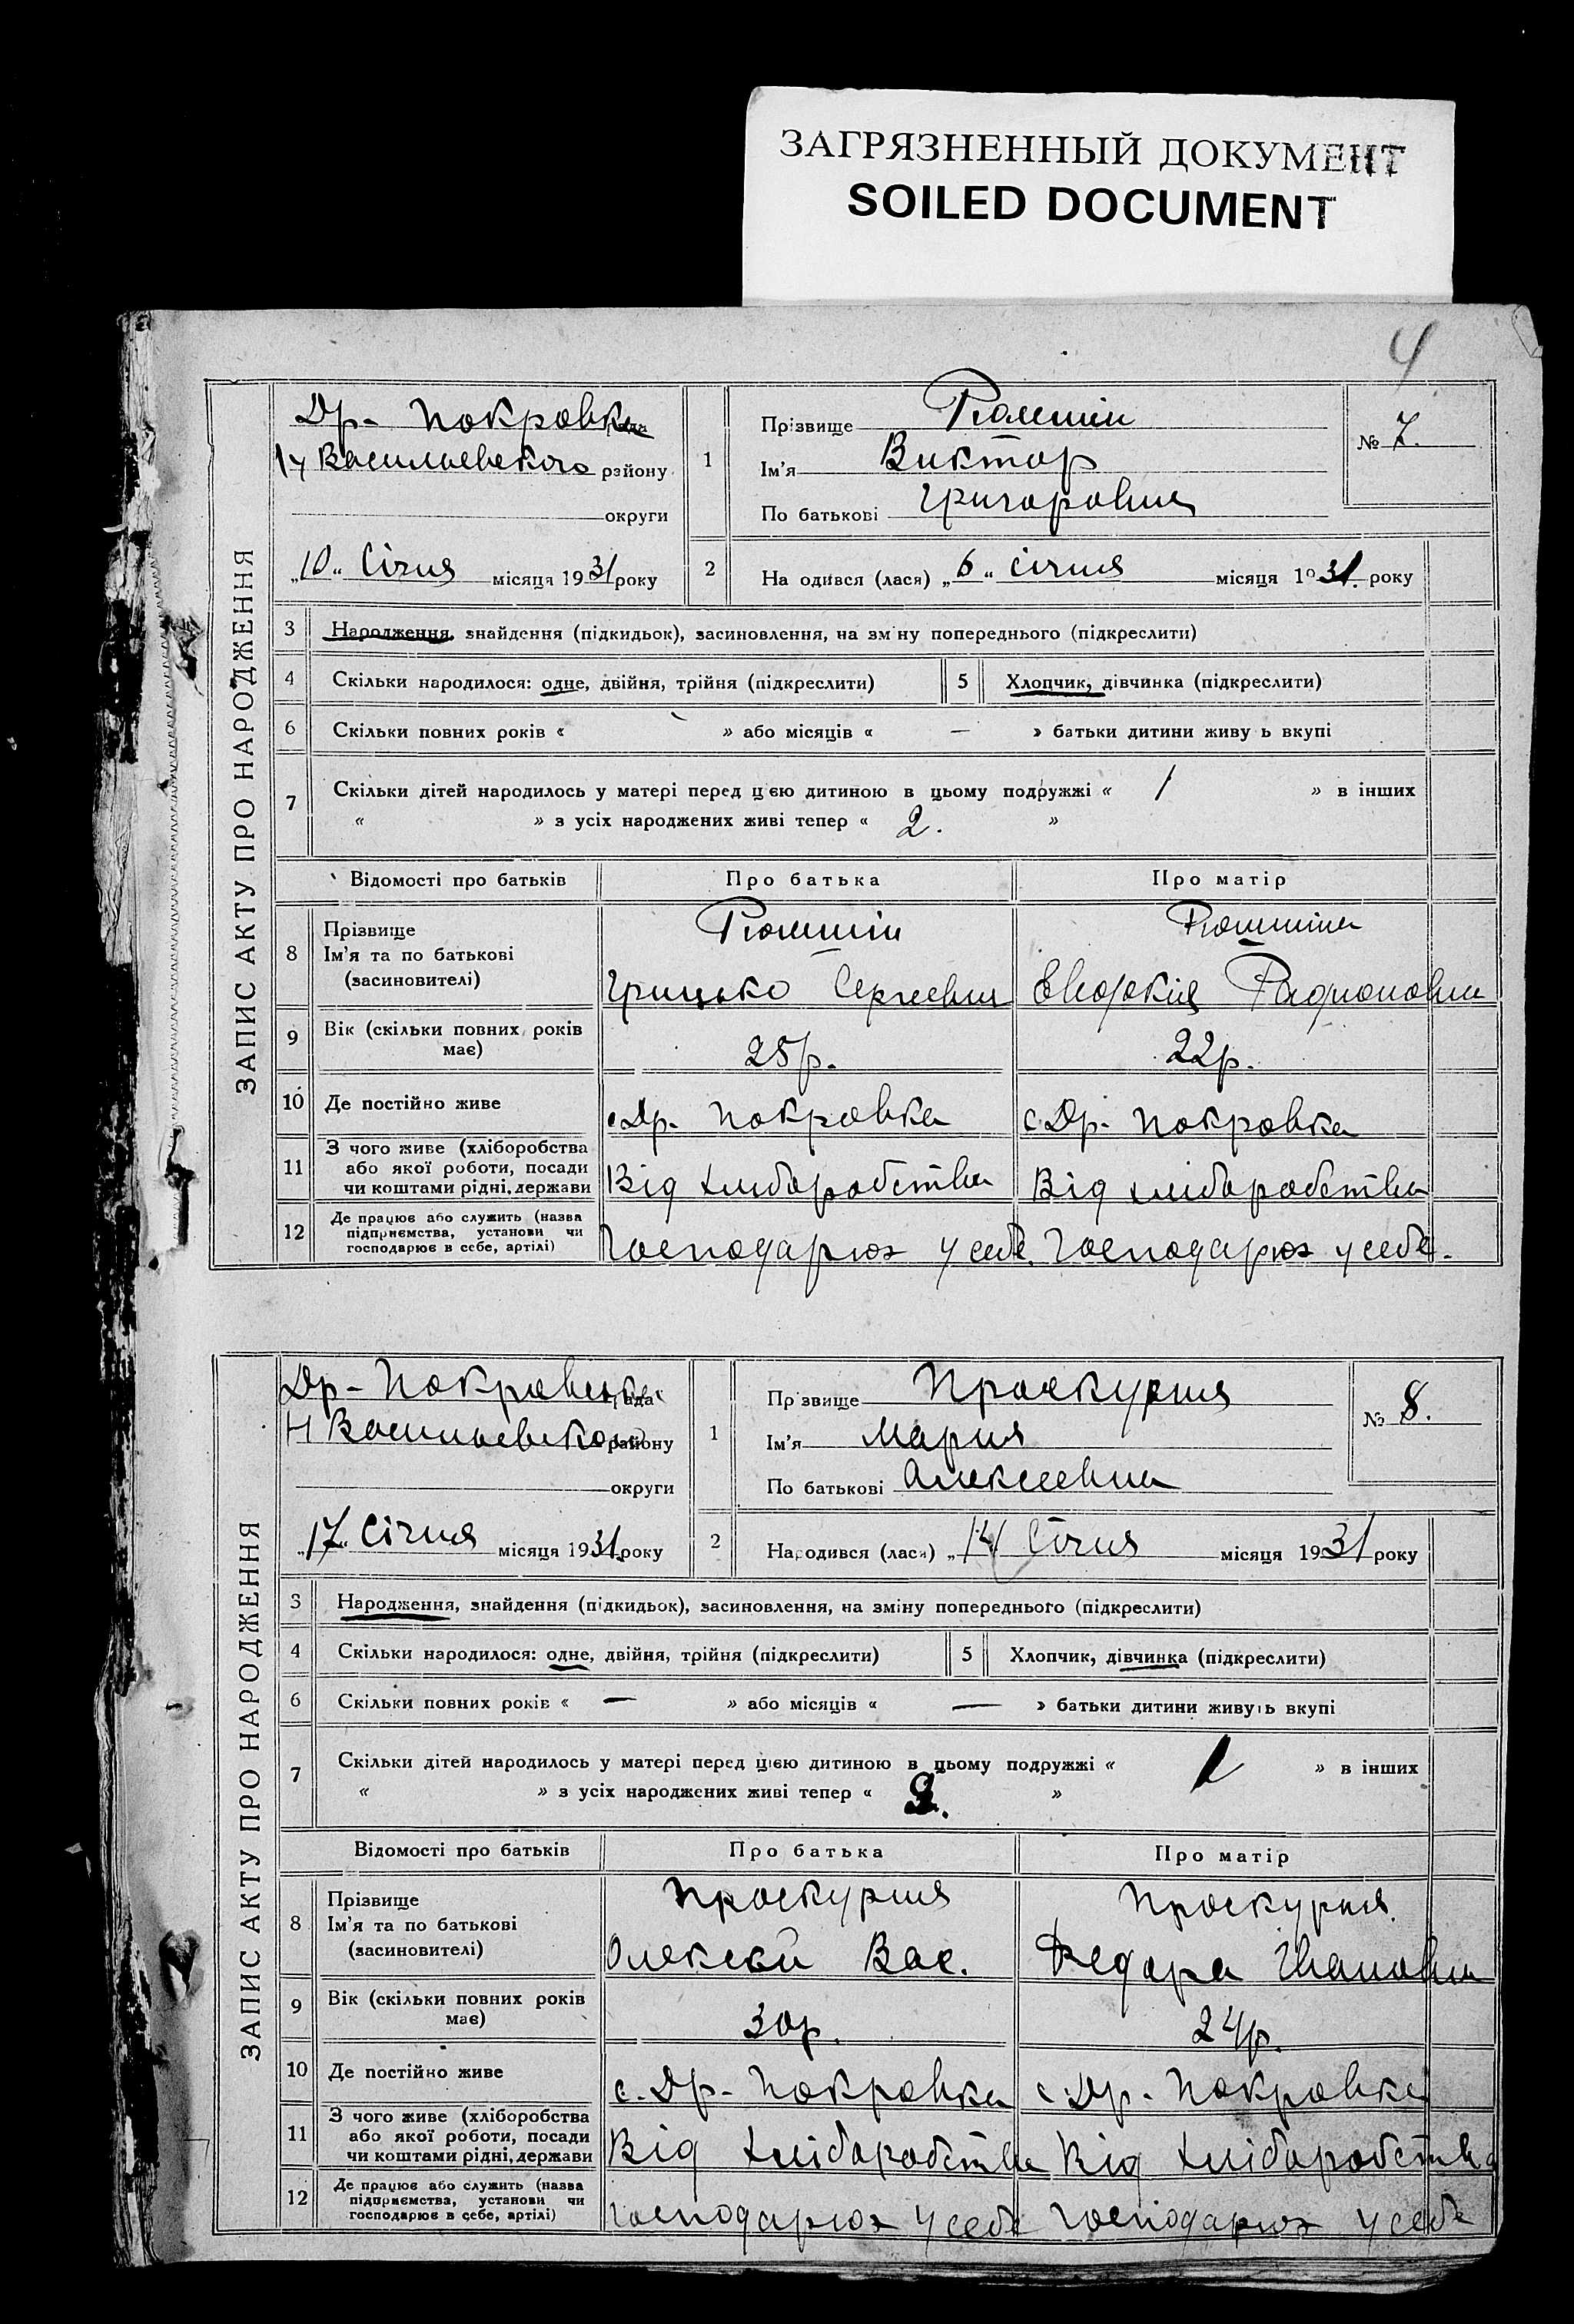 ЗАГРЯЗНЕННЫЙ ДОКУМЕНТ
SOILED DOCUMENT
4
ЗАПИС АКТУ ПРО НАРОДЖЕННЯ
Др- Покровка
району
округи
„10" Січня місяця 1931 року
1
Прізвище
Ім'я Виктор
По батькові Григорович
№ 7.
2 На одився (лася) „6" січня місяця 1931. року
3 Народження, знайдення (підкидьок), засиновлення, на зм ну попереднього (підкреслити)
4 Скільки народилося: одне, двійня, трійня (підкреслити) 5 Хлопчик, дівчинка (підкреслити)
6 Скільки повних років « » або місяців « — » батьки дитини живу ь вкупі
7 Скільки дітей народилось у матері перед цією дитиною в цьому подружжі « 1 » в інших
« » з усіх народжених живі тепер « 2. »
Відомості про батьків Про батька Про матір
8 Прізвище
Ім'я та по батькові
(засиновителі)
Грицько Сергеевич
9 Вік (скільки повних років
має)
25р. 22р.
10 Де постійно живе с Др- Покровка с. Др- Покровка
11 З чого живе (хліборобства
або якої роботи, посади
чи коштами рідні, держави
Від хлиборобства Від хлиборобства
12 Де працює або служить (назва
підприємства, установи чи
господарює в себе, артілі)
Господарює у себе. Господарює у себе.
ЗАПИС АКТУ ПРО НАРОДЖЕННЯ
Др- Покровська рада
району
округи
„17" Січня місяця 1931. року
1
Пр звище Проскурня
Ім'я Мария
По батькові Алексеевна
№ 8.
2 Народився (лася) „14 Січня місяця 1931 року
3 Народження, знайдення (підкидьок), засиновлення, на зміну попереднього (підкреслити)
4 Скільки народилося: одне, двійня, трійня (підкреслити) 5 Хлопчик, дівчинка (підкреслити)
6 Скільки повних років « — » або місяців « — » батьки дитини живуть вкупі
7 Скільки дітей народилось у матері перед цією дитиною в цьому подружжі « 1 » в інших
« » з усіх народжених живі тепер « 2. »
Відомості про батьків Про батька Про матір
8 Прізвище
Ім'я та по батькові
(засиновителі)
Проскурня Проскурня
Олексей Вас. Федора Ивановна
9 Вік (скільки повних років
має)
30р. 24р.
10 Де постійно живе с. Др- Покровка с Др- Покровка
11 З чого живе (хліборобства
або якої роботи, посади
чи коштами рідні, держави
Від хліборобства Від хліборобства
12 Де працює або служить (назва
підприємства, установи чи
господарює в себе, артілі)
Господарює у себе Господарює у себе